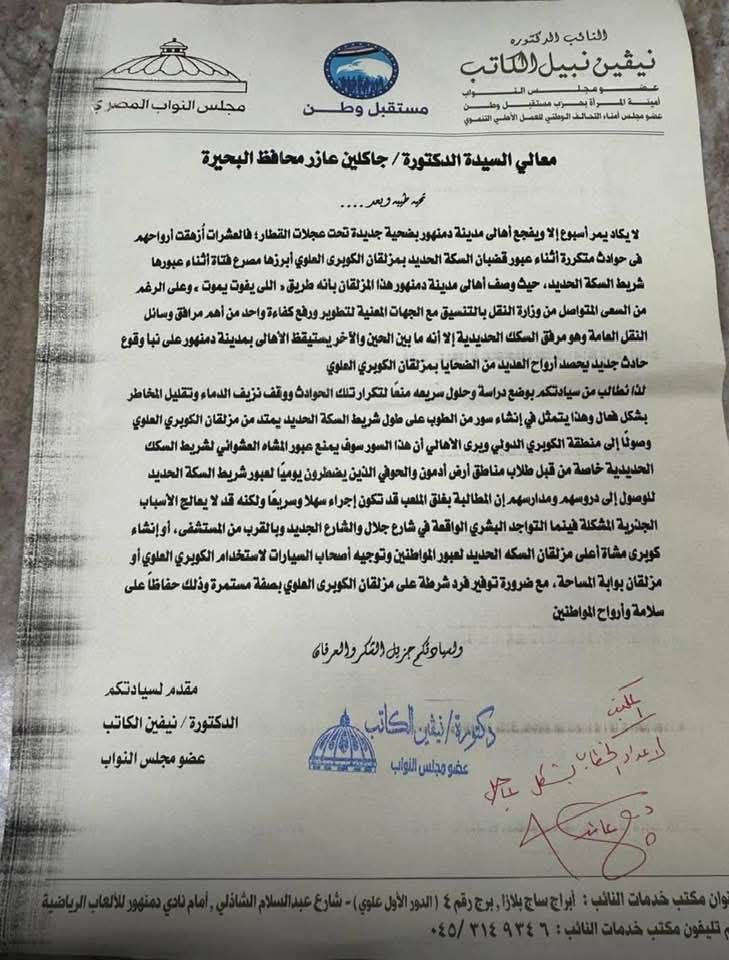 النائب الدكتوره
نيڤين نبيل الكاتب
عضو مجلس النواب
أمينة المرأة بحزب مستقبل وطن
عضو مجلس أمناء التحالف الوطني للعمل الأهلي التنموي
مستقبل وطن
مجلس النواب المصري
معالي السيدة الدكتورة / جاكلين عازر محافظ البحيرة
تحية طيبه وبعد ....
لا يكاد يمر أسبوع إلا ويفجع أهالى مدينة دمنهور بضحية جديدة تحت عجلات القطار؛ فالعشرات أُزهقت أرواحهم
فى حوادث متكررة أثناء عبور قضبان السكة الحديد بمزلقان الكوبرى العلوي أبرزها مصرع فتاة أثناء عبورها
شريط السكة الحديد، حيث وصف أهالى مدينة دمنهور هذا المزلقان بانه طريق « اللى يفوت يموت » وعلى الرغم
من السعى المتواصل من وزارة النقل بالتنسيق مع الجهات المعنية لتطوير ورفع كفاءة واحد من أهم مرافق وسائل
النقل العامة وهو مرفق السكك الحديدية إلا أنه ما بين الحين والآخر يستيقظ الأهالى بمدينة دمنهور على نبا وقوع
حادث جديد يحصد أرواح العديد من الضحايا بمزلقان الكوبري العلوي
لذا نطالب من سيادتكم بوضع دراسة وحلول سريعه منعاً لتكرار تلك الحوادث ووقف نزيف الدماء وتقليل المخاطر
بشكل فعال وهذا يتمثل في إنشاء سور من الطوب على طول شريط السكة الحديد يمتد من مزلقان الكوبري العلوي
وصولًا إلى منطقة الكوبري الدولي ويرى الأهالي أن هذا السور سوف يمنع عبور المشاه العشوائي لشريط السكك
الحديدية خاصة من قبل طلاب مناطق أرض أدمون والحوفي الذين يضطرون يوميًا لعبور شريط السكة الحديد
للوصول إلى دروسهم ومدارسهم إن المطالبة بغلق الملعب قد تكون إجراء سهلا وسريعًا ولكنه قد لا يعالج الأسباب
الجذرية المشكلة فينما التواجد البشري الواقعة في شارع جلال والشارع الجديد وبالقرب من المستشفى، أو إنشاء
كوبرى مشاة أعلى مزلقان السكه الحديد لعبور المواطنين وتوجيه أصحاب السيارات لاستخدام الكوبري العلوي أو
مزلقان بوابة المساحة، مع ضرورة توفير فرد شرطة على مزلقان الكوبرى العلوي بصفة مستمرة وذلك حفاظاً على
سلامة وأرواح المواطنين
ولسيادتكم جزيل الشكر والعرفان
مقدم لسيادتكم
الدكتورة / نيفين الكاتب
عضو مجلس النواب
دكتورة / نيڤين الكاتب
عضو مجلس النواب
لاعداد الخطاب بشكل عاجل
وان مكتب خدمات النائب : أبراج ساج بلازا , برج رقم ٤ ( الدور الأول علوي) - شارع عبدالسلام الشاذلي , أمام نادي دمنهور للألعاب الرياضية
م تليفون مكتب خدمات النائب : ٠٤٥/ ٣١٤ ٩٣٤ ٦